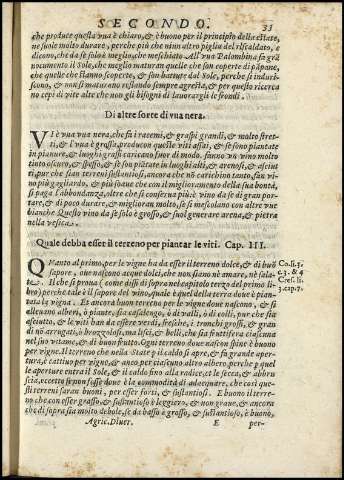 SECONDO. 33
che produce questa vua è chiaro, & è buono per il principio della estate,
ne suole molto durare, perche più che niun altro piglia del riscaldato, e
dicono, che da se solo è meglio, che meschiato. All'vua Palombina fa gra
nocumento il Sole, che meglio maturan quelle che son coperte di pápane,
che quelle che stanno scoperte, & son battute dal Sole, perche si induri-
scono, & non si maturano restando sempre agreste, & per questo ricerca
no cepi di vite alte che non gli bisogni di lauorargli le frondi.
Di altre sorte di vua nera.
VI è vna vua nera, che fa i racemi, & graspi grandi, & molto stret-
ti, & l'vua è grossa, producon quelle viti assai, & se sono piantate
in pianure, & luoghi grassi caricano fuor di modo. fanno vn vino molto
tinto oscuro, & spesso, & se son piantate in luoghi alti, & arenosi, & assciut
ti, pur che sian terreni sustantiosi, ancora che nō carichino tanto, fan vi-
no più gagliardo, & più fino che con il miglioramento della sua bontà,
si paga l'abbondanza, altre che si conserua più: è vino da se di gran por-
tare, & di poco durare, & migliorano molto, se si mescolano con altre vue
bianche Questo vino da se solo è grosso, & suol generare arena, & pietra
nella vesica.
Quale debba esser il terreno per piantar le viti. Cap. III.
QVanto al primo, per le vigne ha da esser il terreno dolce, & di buō Co. li. 3.
sapore, oue nascono acque dolci, che non siano nè amare, nè sala- c. 3. & 4
te. Il che si proua (come dissi di sopra nel capitolo terzo del primo li- Cres. li.
bro) perche tale è il sapore del vino, quale è quel della terra doue è pian- 3. cap. 7.
tata la vigna. Et ancora buon terreno per le vigne doue nascono, & si
fanno alberi, ò piante, sia casalengo, ò di valli, ò di colli, pur che sia
asciutto, & le viti han da essere verdi, fresche, i tronchi grossi, & gran
di nō arrugati, ò bruzzolosi, ma lisci, & belli, che sia fruttifera ciascuna
nel suo vitame, & di buon frutto. Ogni terreno doue nascon spine è buono
per vigne. Il terreno che nella State p il caldo si apre, & fa grande aper-
tura, è cattiuo per vigne, & anco per ciascuno altro albero, perche p quel
le aperture entra il Sole, & il caldo fino alla radice, et le secca, & abbru
scia, eccetto se non fosse doue è la commodità di adacquare, che così que-
sti terreni saran buoni, per esser forti, & sustantiosi. E buono il terre-
no che con esser grasso, & sustantioso è leggiero, & non graue, & ancora
che di sopra sia molto debole, se da basso è grosso, & sustantioso, è buono,
Agric. Diuer. E per-